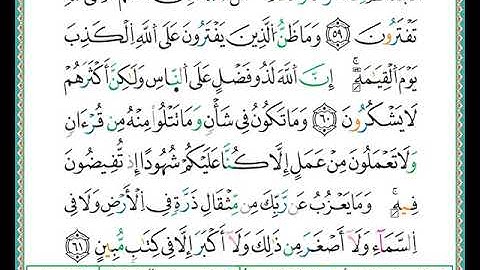 تَفْتَرُونَ ٥٩ وَمَا ظَنُّ الَّذِينَ يَفْتَرُونَ عَلَى اللَّهِ الْكَذِبَ
يَوْمَ الْقِيَٰمَةِ إِنَّ اللَّهَ لَذُو فَضْلٍ عَلَى النَّاسِ وَلَٰكِنَّ أَكْثَرَهُمْ
لَا يَشْكُرُونَ ٦٠ وَمَا تَكُونُ فِي شَأْنٍ وَمَا تَتْلُوا مِنْهُ مِن قُرْءَانٍ
وَلَا تَعْمَلُونَ مِنْ عَمَلٍ إِلَّا كُنَّا عَلَيْكُمْ شُهُودًا إِذْ تُفِيضُونَ
فِيهِ وَمَا يَعْزُبُ عَن رَّبِّكَ مِن مِّثْقَالِ ذَرَّةٍ فِي الْأَرْضِ وَلَا فِي
السَّمَاءِ وَلَا أَصْغَرَ مِن ذَٰلِكَ وَلَا أَكْبَرَ إِلَّا فِي كِتَٰبٍ مُّبِينٍ ٦١